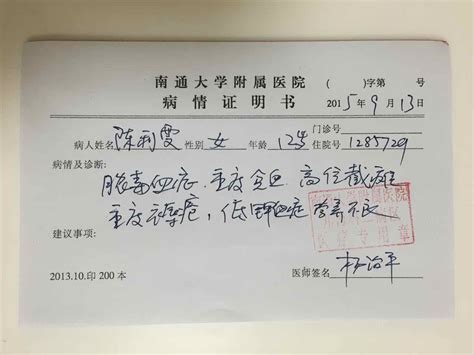 南通大学附属医院 ( )字第 号
病情证明书 2015年9月13日
门诊号
病人姓名 陈利雯 性别 女 年龄 12岁 住院号 1285729
病情及诊断:
脓毒血症. 重度贫血 高位截瘫
重度褥疮, 低钾血症 营养不良
南通大学附属医院
医疗专用章
建议事项:
2013.10.印200本 医师签名